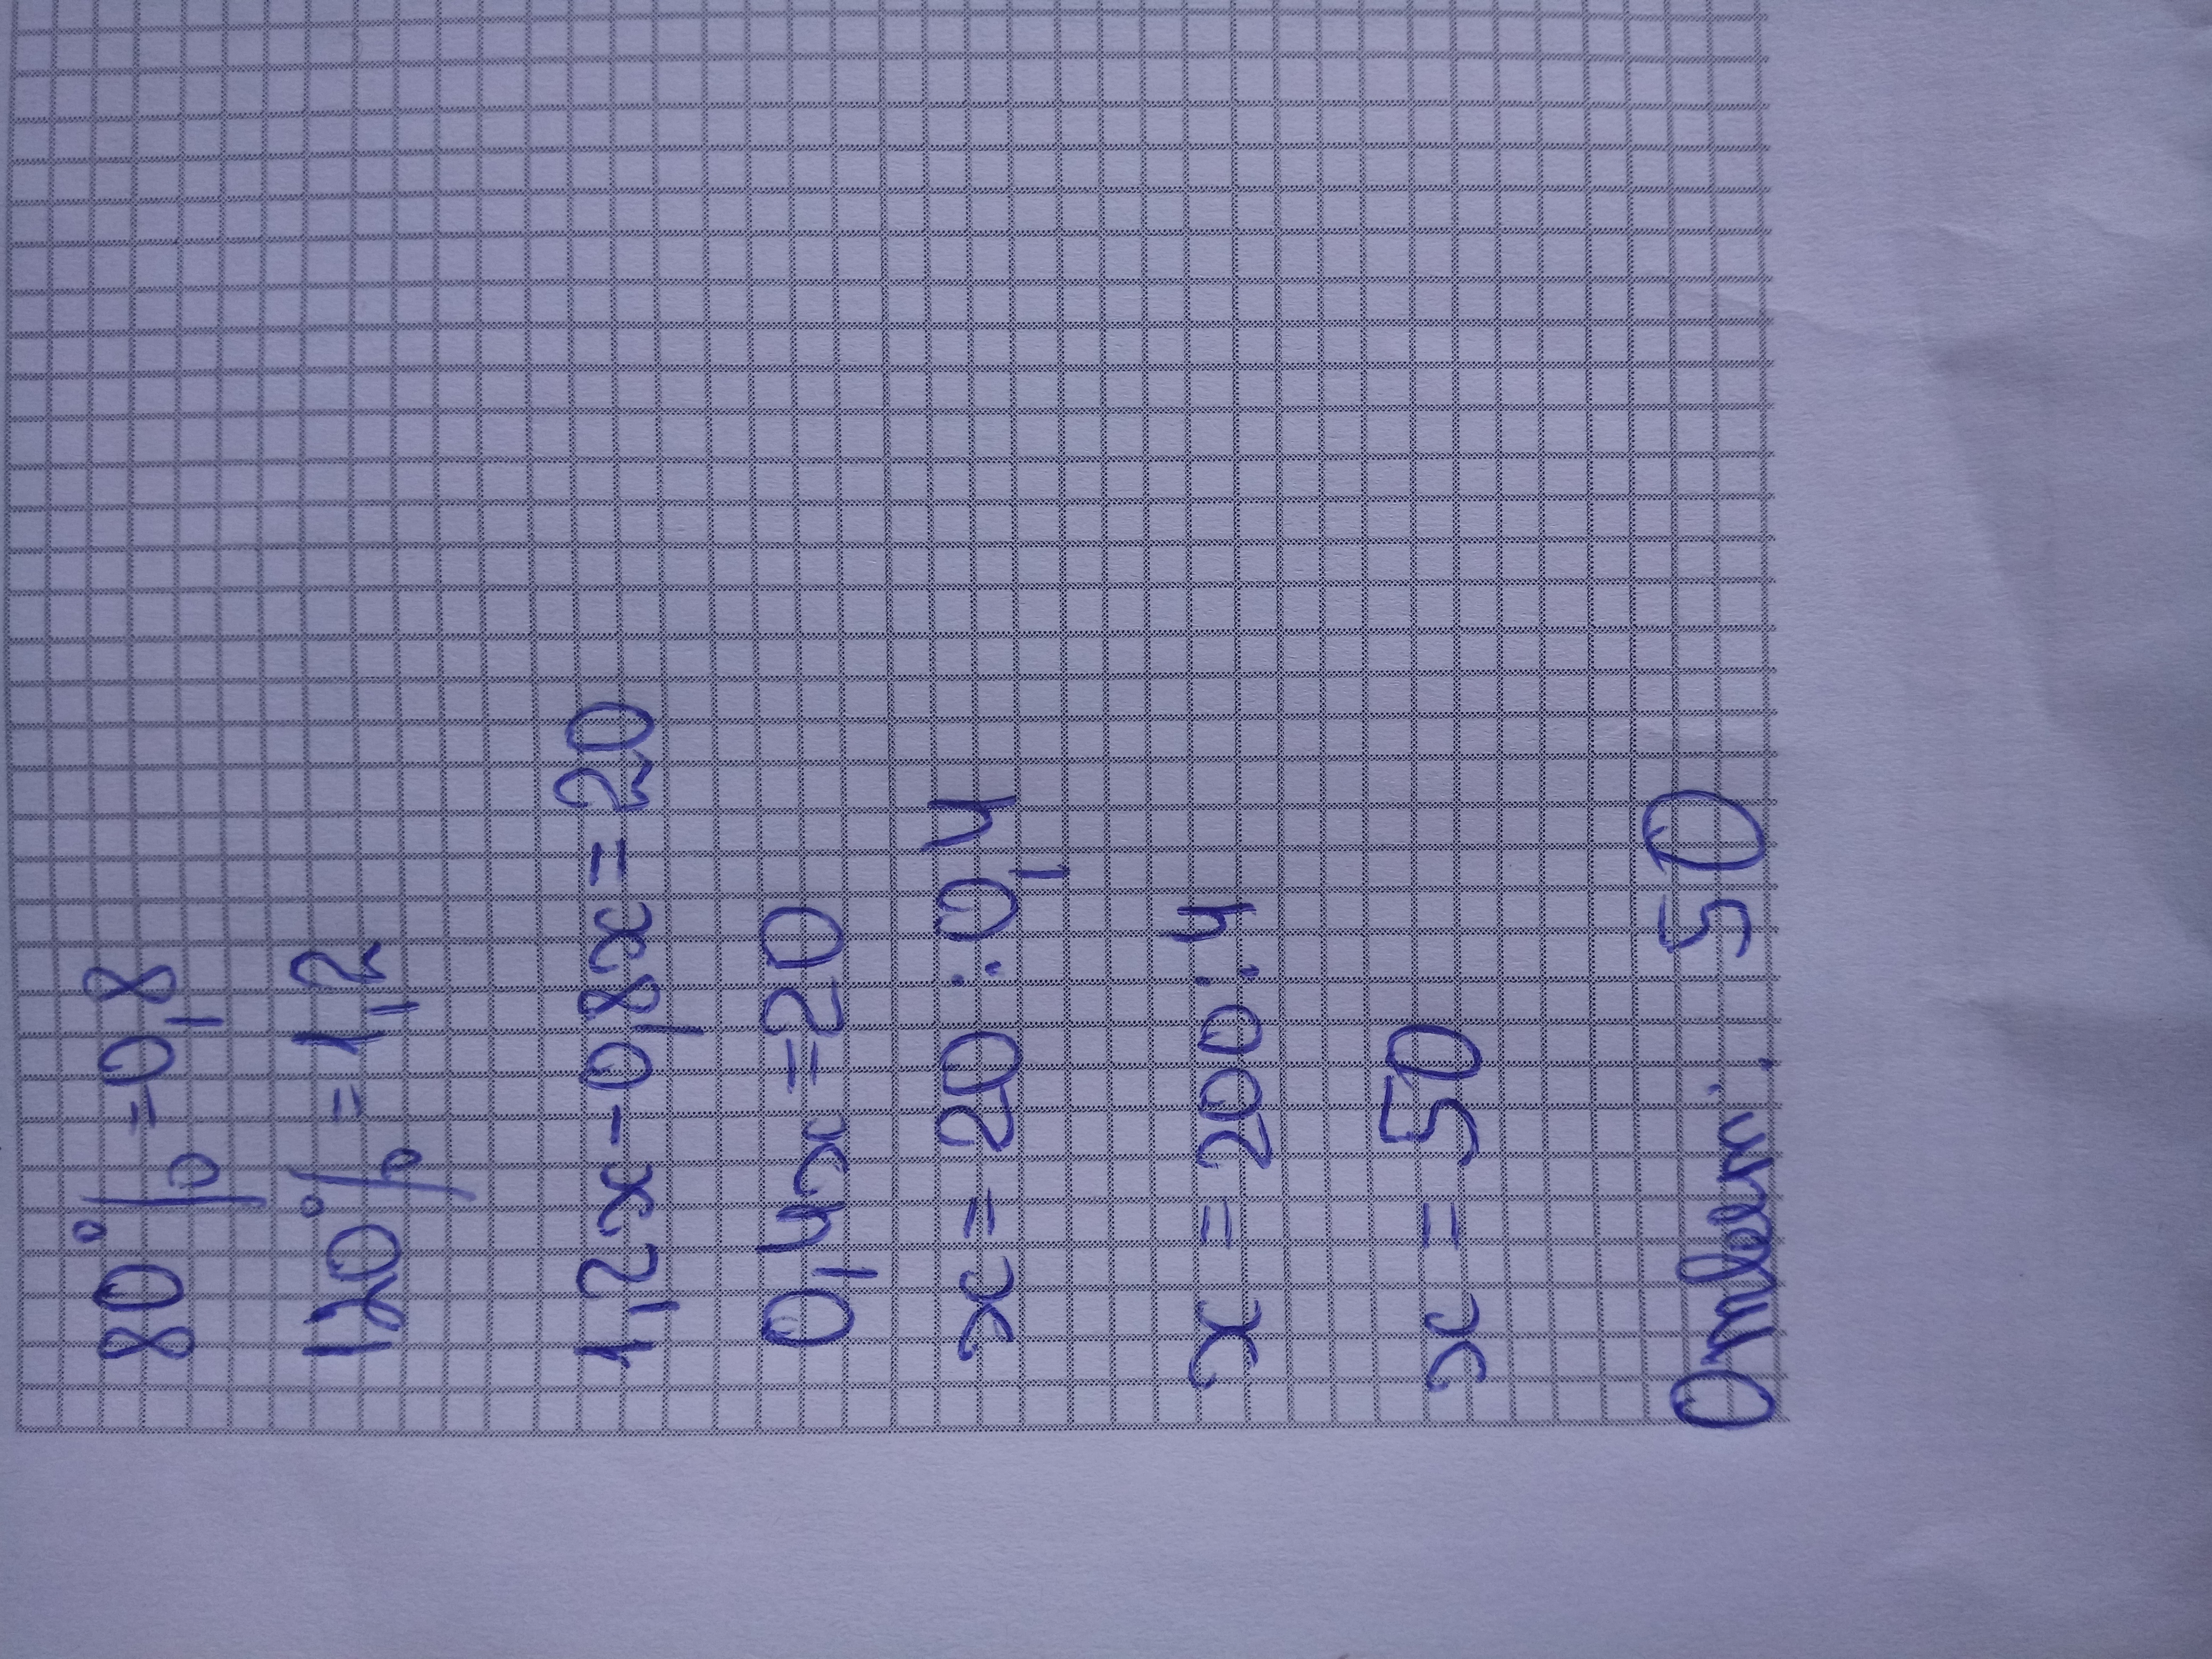 80% = 0,8
120% = 1,2
1,2x - 0,8x = 20
0,4x = 20
x = 20 : 0,4
x = 200 : 4
x = 50
Ответ: 50